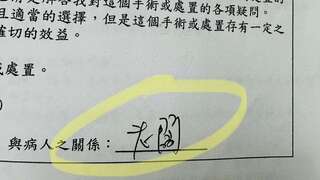 解答我對這個手術或處置的各項疑問。
且適當的選擇，但是這個手術或處置存有一定之
確切的效益。
或處置。
)
與病人之關係：老闆